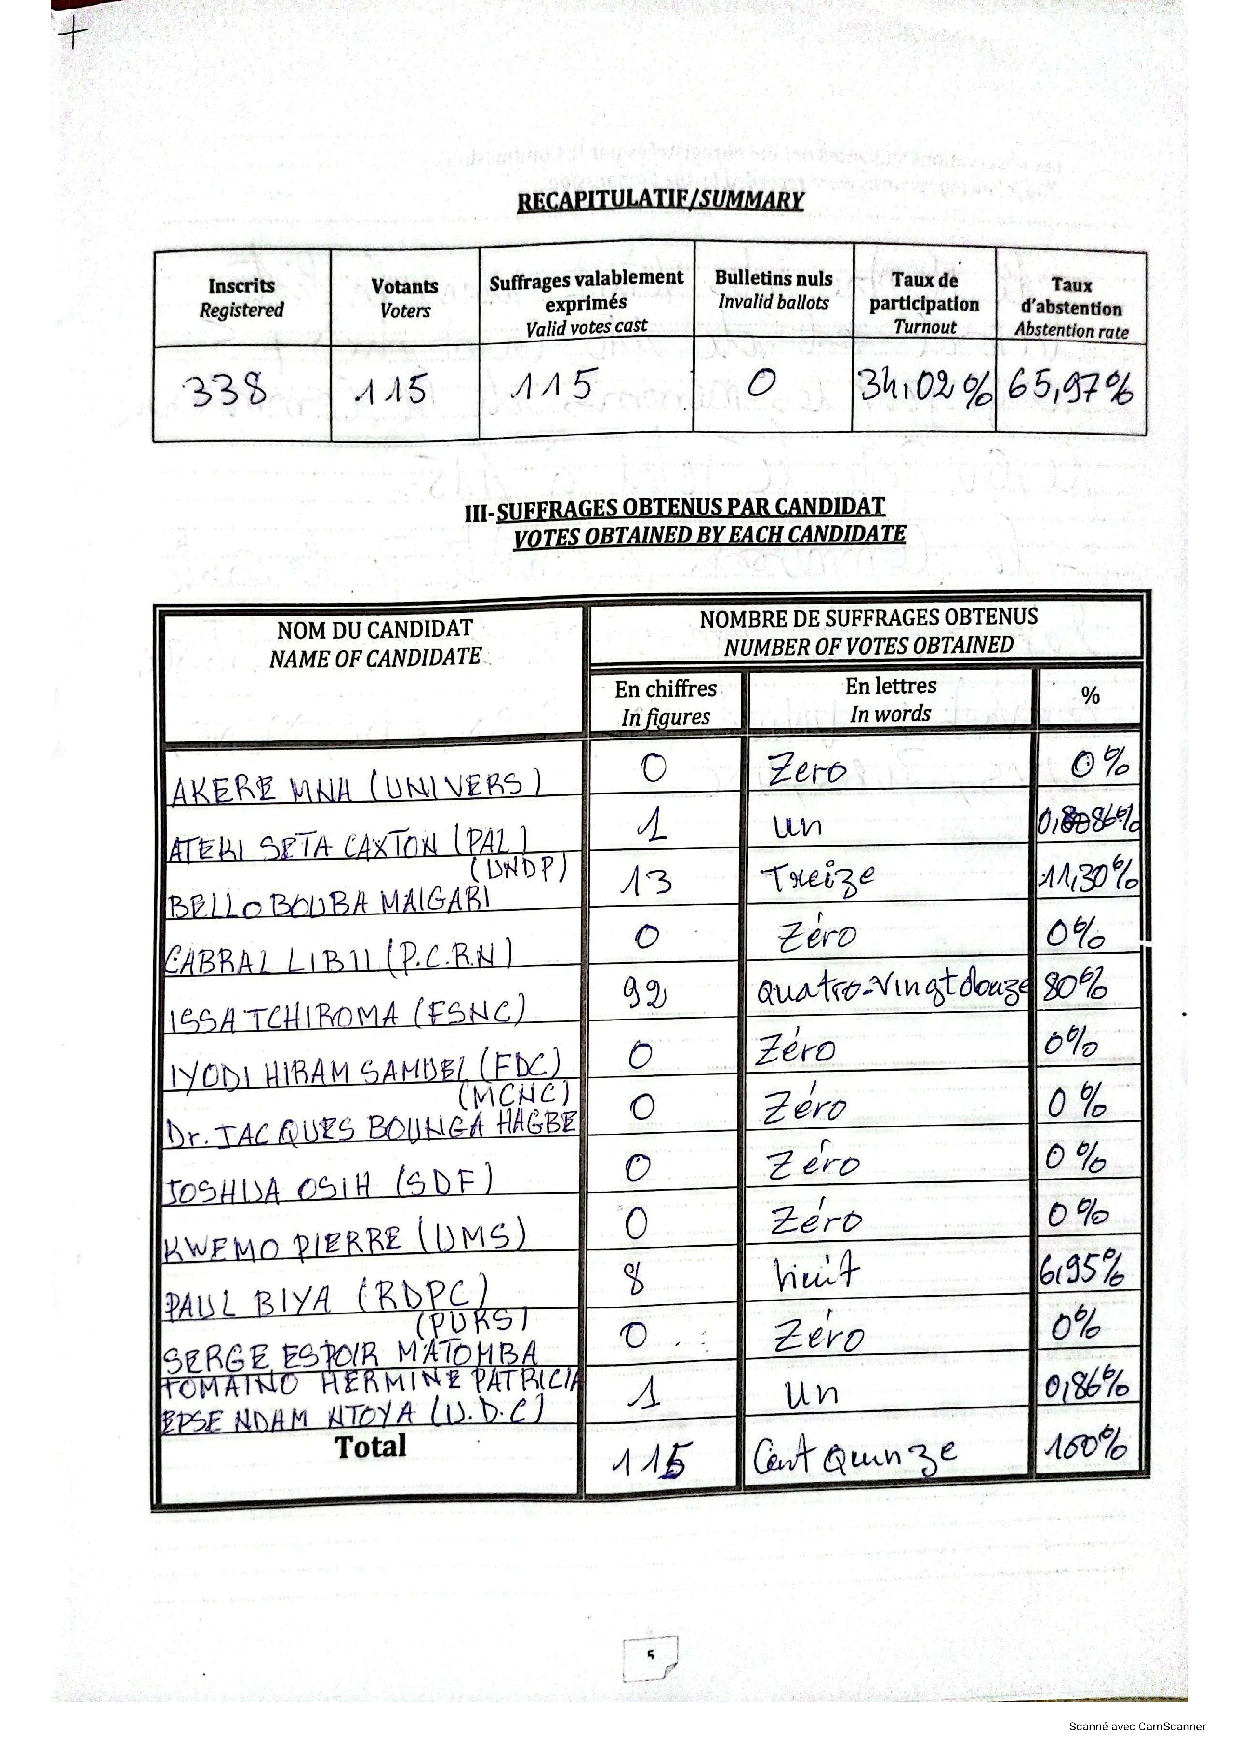 RECAPITULATIF/SUMMARY
Inscrits
Registered
Votants
Voters
Suffrages valablement
exprimés
Valid votes cast
Bulletins nuls
Invalid ballots
Taux de
participation
Turnout
Taux
d'abstention
Abstention rate
338 115 115 0 34,02% 65,97%
III-SUFFRAGES OBTENUS PAR CANDIDAT
VOTES OBTAINED BY EACH CANDIDATE
NOM DU CANDIDAT
NAME OF CANDIDATE
NOMBRE DE SUFFRAGES OBTENUS
NUMBER OF VOTES OBTAINED
En chiffres
In figures
En lettres
In words
%
AKERE MNA (UNIVERS) 0 Zero 0%
ATEKI SETA CAXTON (PAL) 1 un 0,86%
(UNDP)
BELLO BOUBA MAIGARI 13 Treize 11,30%
CABRAL LIBII (P.C.R.N) 0 Zéro 0%
ISSA TCHIROMA (FSNC) 92 Quatro-Vingt douze 80%
IYODI HIRAM SAMUEL (FDC) 0 Zéro 0%
(MCNC)
Dr. JACQUES BOUNGA HAGBE 0 Zéro 0%
JOSHUA OSIH (SDF) 0 Zéro 0%
KWEMO PIERRE (UMS) 0 Zéro 0%
PAUL BIYA (RDPC) 8 huit 6,95%
(PURS)
SERGE ESPOIR MATOMBA 0 Zéro 0%
TOMAINO HERMINE PATRICIA
EPSE NDAM NTOYA (U.D.C) 1 un 0,86%
Total 115 Cent Quinze 100%
5
Scanné avec CamScanner